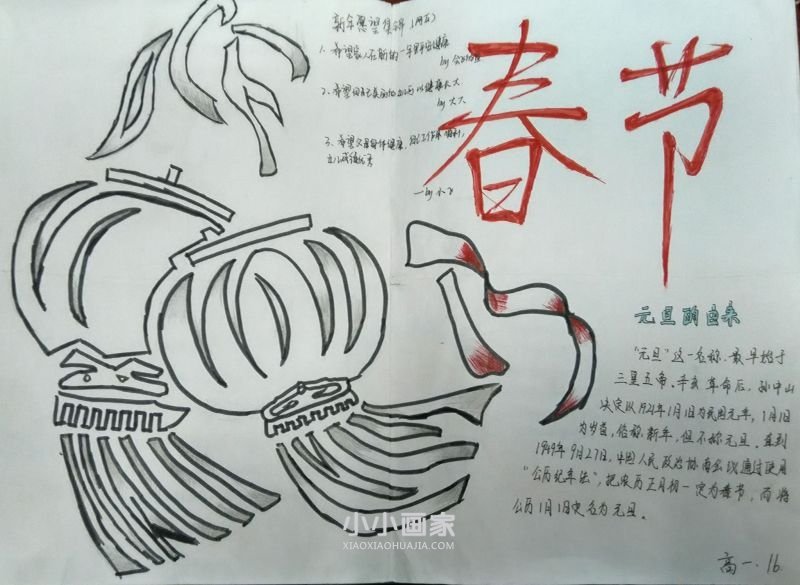 新年愿望集锦
1、希望家人在新的一年里平安健康
by
2、希望 以健康长大
by 大六
3、希望父母身体健康,
一by 小飞
春节
元旦的由来
“元旦”这一名称,最早始于
三皇五帝.辛亥革命后,孙中山
决定以1912年1月1日为民国元年,1月1日
为岁首,俗称新年,但不称元旦.直到
1949年9月27日,中国人民政治协商会议通过使用
“公历纪年法”,把农历正月初一定为春节,而将
公历1月1日定名为元旦。
高一.16
小小画家
XIAOXIAOHUAJIA.COM